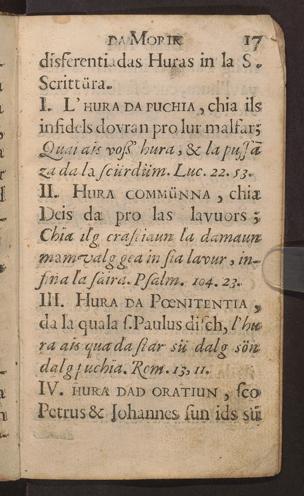 DA MORIR 17
differentiadas Huras in la S.
Scrittüra.
I. L'HURA DA PUCHIA, chia ils
infidels dovran pro lur malfar;
Quai ais voss' hura, & la pussãza
da la scürdüm. Luc. 22. 53.
II. HURA COMMÜNNA, chia
Deis da pro las lavuors;
Chia ilg crastiaun la damaun
mamvalg gea in sia lavur, infina
la saira. Psalm. 104. 23.
III. HURA DA PŒNITENTIA,
da la quala S. Paulus disch, l'hura
ais qua da star sü dalg sön
dalg puchia. Rom. 13, 11.
IV. HURA DAD ORATIUN, sco
Petrus & Johannes sun ids sü